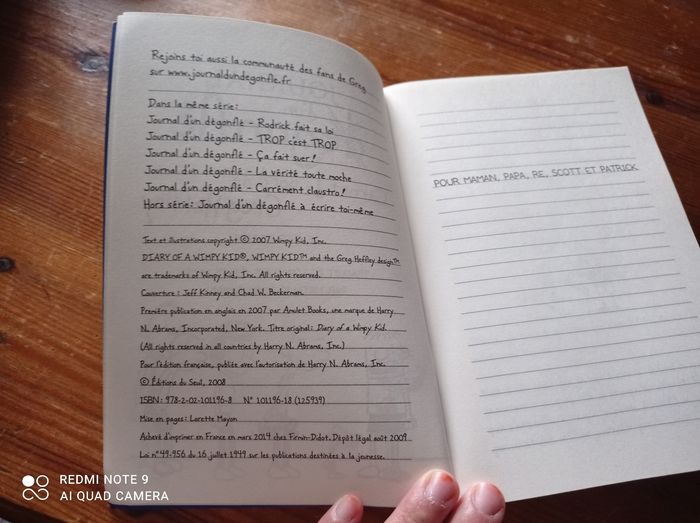 Rejoins toi aussi la communauté des fans de Greg
sur www.journaldundegonfle.fr
Dans la même série:
Journal d'un dégonflé - Rodrick fait sa loi
Journal d'un dégonflé - TROP c'est TROP
Journal d'un dégonflé - Ça fait suer!
Journal d'un dégonflé - La vérité toute moche
Journal d'un dégonflé - Carrément claustro!
Hors série: Journal d'un dégonflé à écrire toi-même
Text et illustrations copyright © 2007 Wimpy Kid, Inc.
DIARY OF A WIMPY KID®, WIMPY KID™ and the Greg Heffley design™
are trademarks of Wimpy Kid, Inc. All rights reserved.
Couverture : Jeff Kinney and Chad W. Beckerman.
Première publication en anglais en 2007 par Amulet Books, une marque de Harry
N. Abrams, Incorporated, New York. Titre original: Diary of a Wimpy Kid.
(All rights reserved in all countries by Harry N. Abrams, Inc.)
Pour l'édition française, publiée avec l'autorisation de Harry N. Abrams, Inc.
© Éditions du Seuil, 2008
ISBN: 978-2-02-101196-8 N° 101196-18 (125939)
Mise en pages: Lorette Mayon
Achevé d'imprimer en France en mars 2014 chez Firmin-Didot. Dépôt légal août 2009
Loi n°49-956 du 16 juillet 1949 sur les publications destinées à la jeunesse.
POUR MAMAN, PAPA, RE, SCOTT ET PATRICK
REDMI NOTE 9
AI QUAD CAMERA